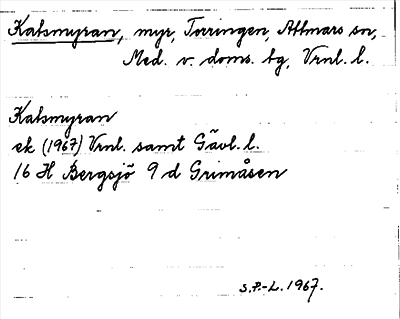 Kalsmyran, myr, Torringen, Attmars sn,
Med. v. doms. tg, Vrnl. l.
Kalsmyran
ek (1967) Vrnl. samt Gävl. l.
16 H Bergsjö 9 d Grimåsen
S.P.-L. 1967.